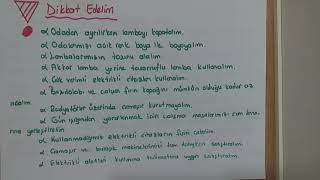 Dikkat Edelim
α Odadan ayrılırken lambayı kapatalım.
α Odalarımızı açık renk boya ile boyayalım.
α Lambalarımızın tozunu alalım
α Akkor lamba yerine tasarruflu lamba kullanalım.
α Çok verimli elektrikli cihazlar kullanalım.
α Buzdolabı ve çalışan fırın kapağını mümkün olduğu kadar az
açalım.
α Radyatörler üzerinde çamaşır kurutmayalım.
α Gün ışığından yararlanmak için çalışma masalarımızı cam
rına yerleştirelim
α Kullanmadığımız elektrikli cihazların fişini çekelim
α Çamaşır ve bulaşık makinelerimizi tam doluyken çalıştıralım
α Elektrikli aletleri kullanma talimatına uygun çalıştıralım.